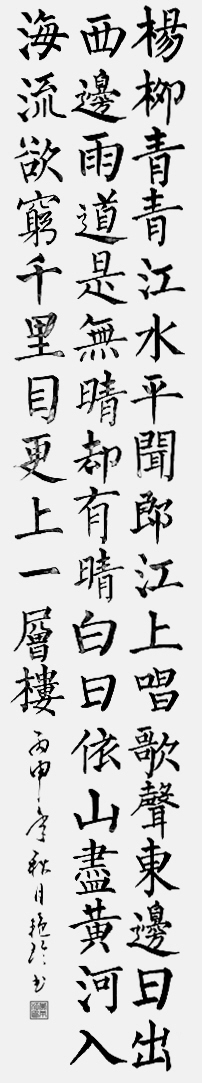 楊柳青青江水平聞郎江上唱歌聲東邊日出
西邊雨道是無晴却有晴白日依山盡黃河入
海流欲窮千里目更上一層樓丙申年秋月艶玲書